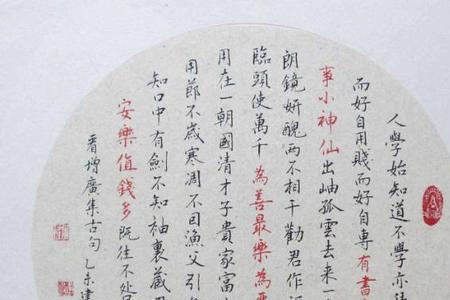 人學始知道不學亦
而好自用賤而好自專有書
事小神仙出岫孤雲去来一
朗鏡妍醜两不相干勸君作
臨頭使萬千為善最樂為
用在一朝國清才子貴家富
用節不歲寒凋不因漁父引
知口中有劍不知袖裏蔵
安樂值錢多既往不咎
晋增廣集古句乙未